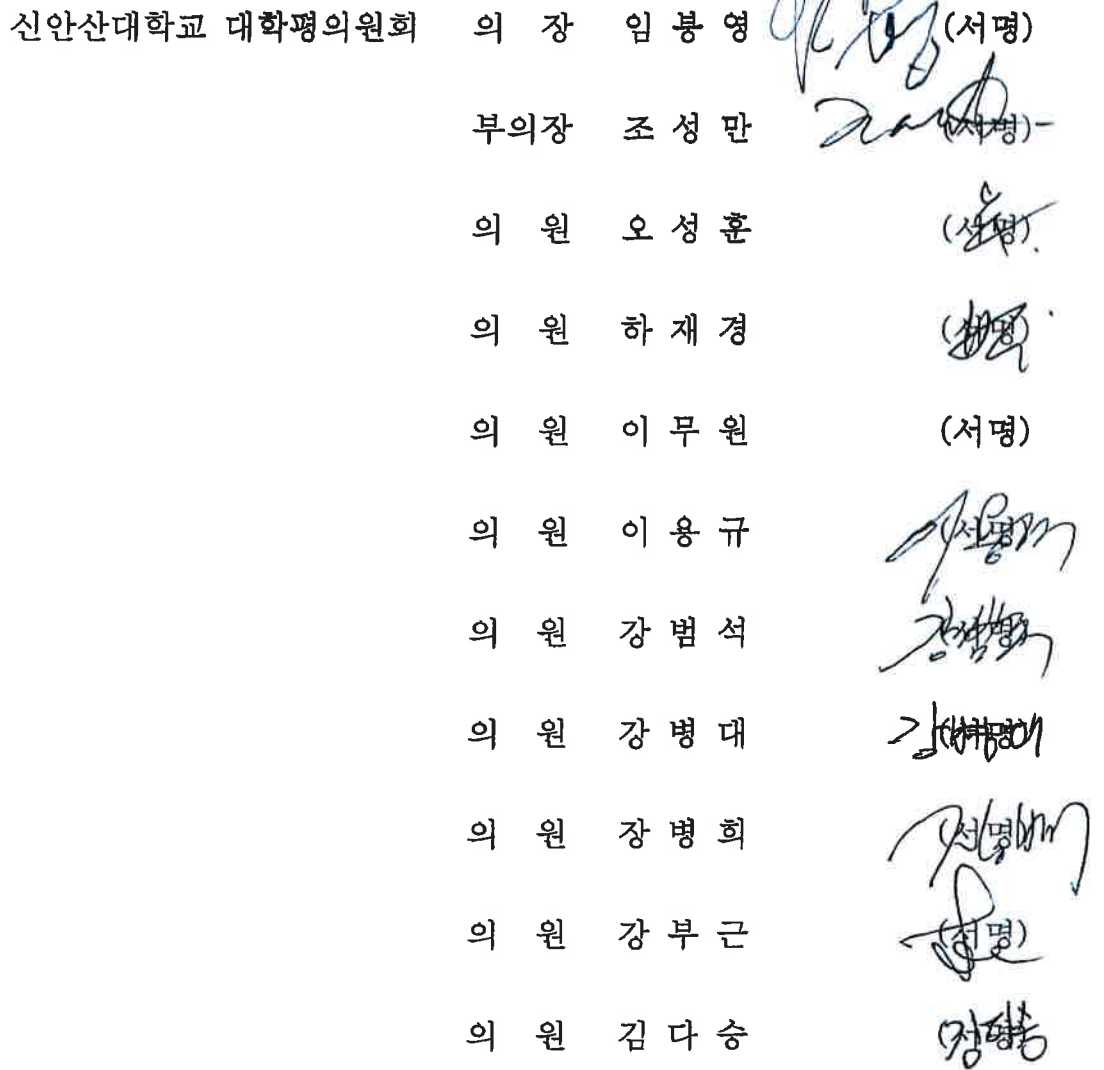 신안산대학교 대학평의원회 의 장 임 봉 영 (서명)
부의장 조 성 만 (서명)
의 원 오 성 훈 (서명)
의 원 하 재 경 (서명)
의 원 이 무 원 (서명)
의 원 이 용 규 (서명)
의 원 강 범 석 (서명)
의 원 강 병 대 (서명)
의 원 장 병 희 (서명)
의 원 강 부 근 (서명)
의 원 김 다 승 (서명)